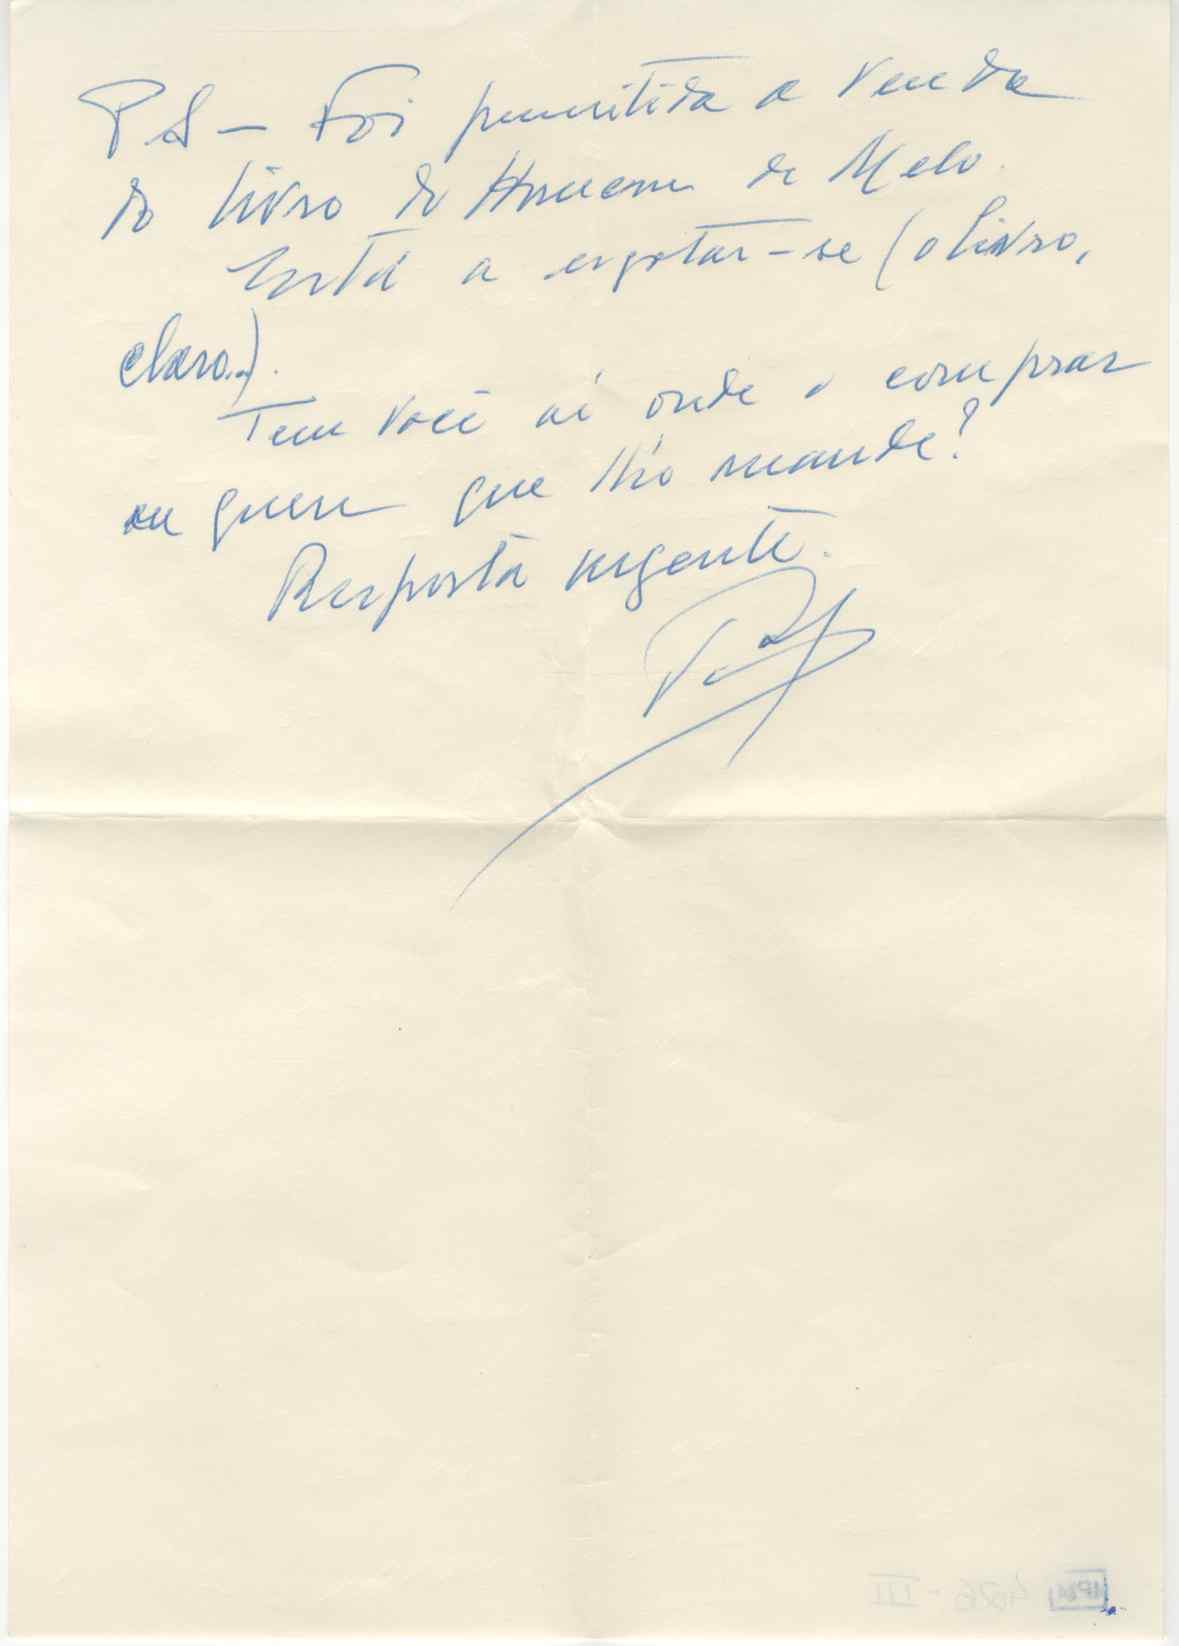 PS — Foi permitida a venda
do livro do Homem de Melo.
Está a esgotar-se (o livro,
claro..).
Tem você aí onde o comprar
ou quere que lho mande?
Resposta urgente.